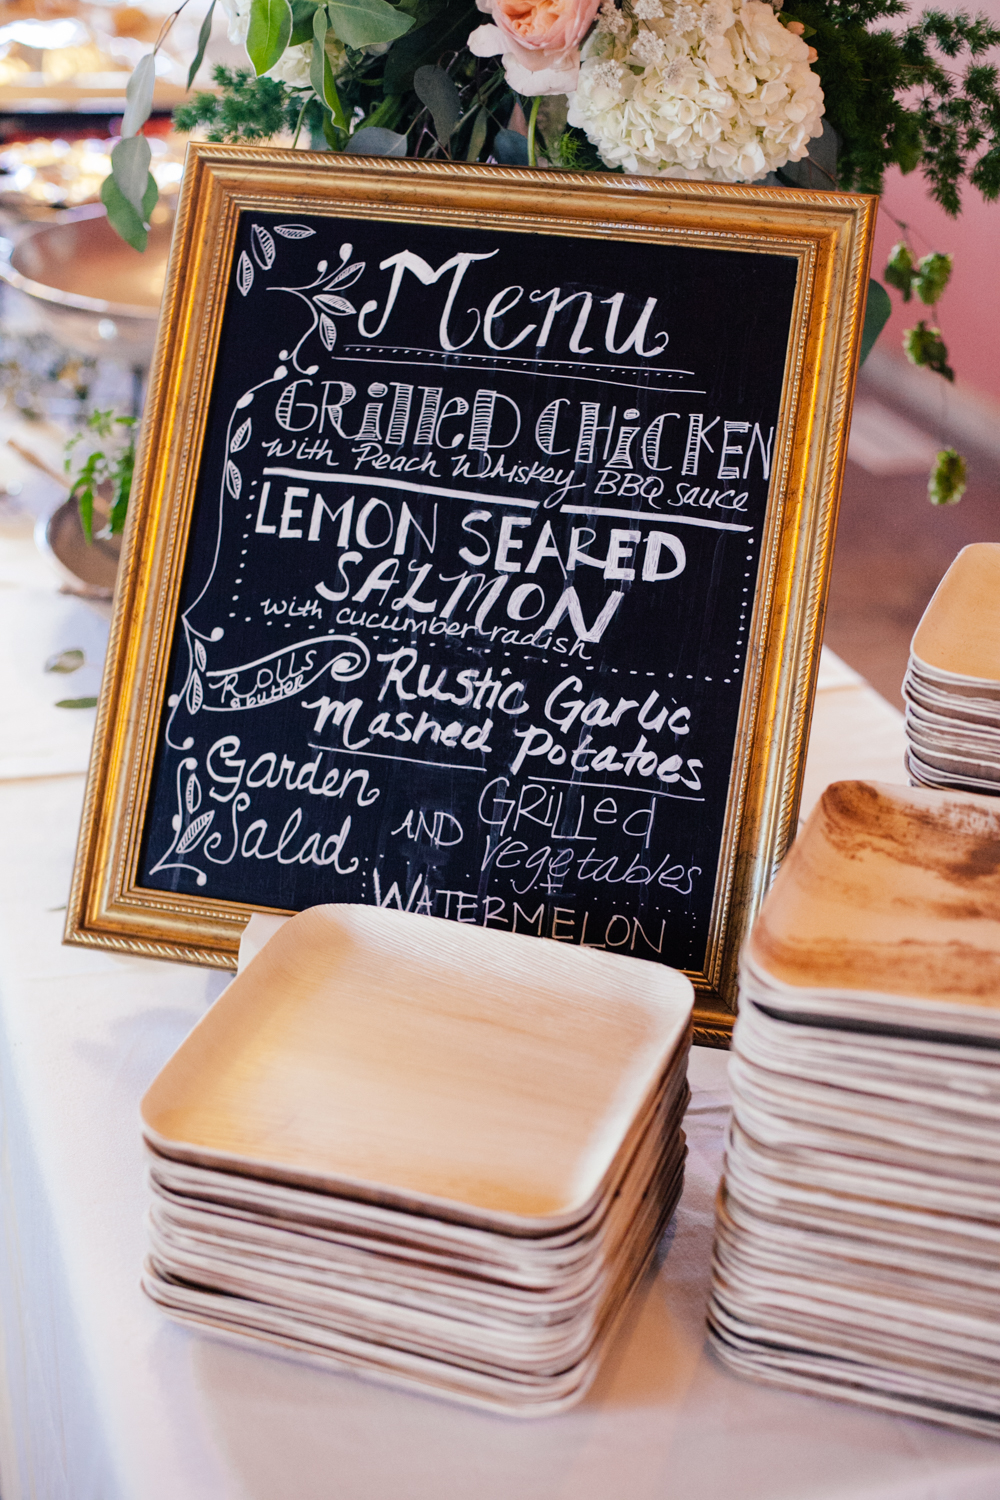 Menu
GRilleD CHiCKEN
with Peach Whiskey BBQ sauce
LEMON SEARED
SALMON
with cucumber radish
Rolls
& butter
Rustic Garlic
Mashed Potatoes
Garden
Salad
AND GRilled
vegetables
WATERMELON